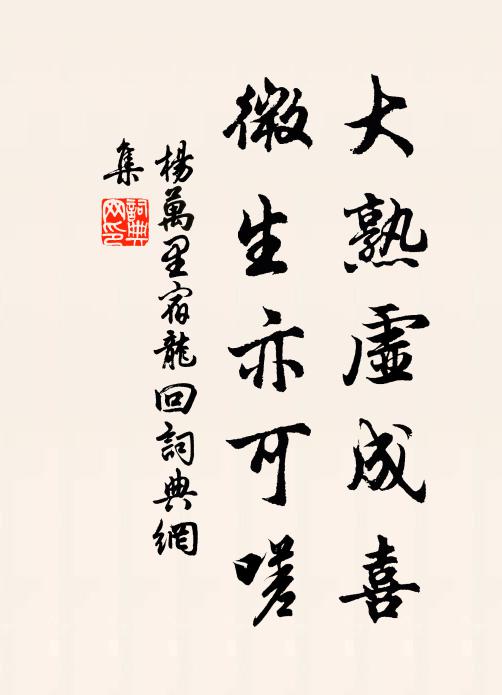 大熟虛成喜
微生亦可嗟
楊萬里宿龍回詞典網
集
詞典網印